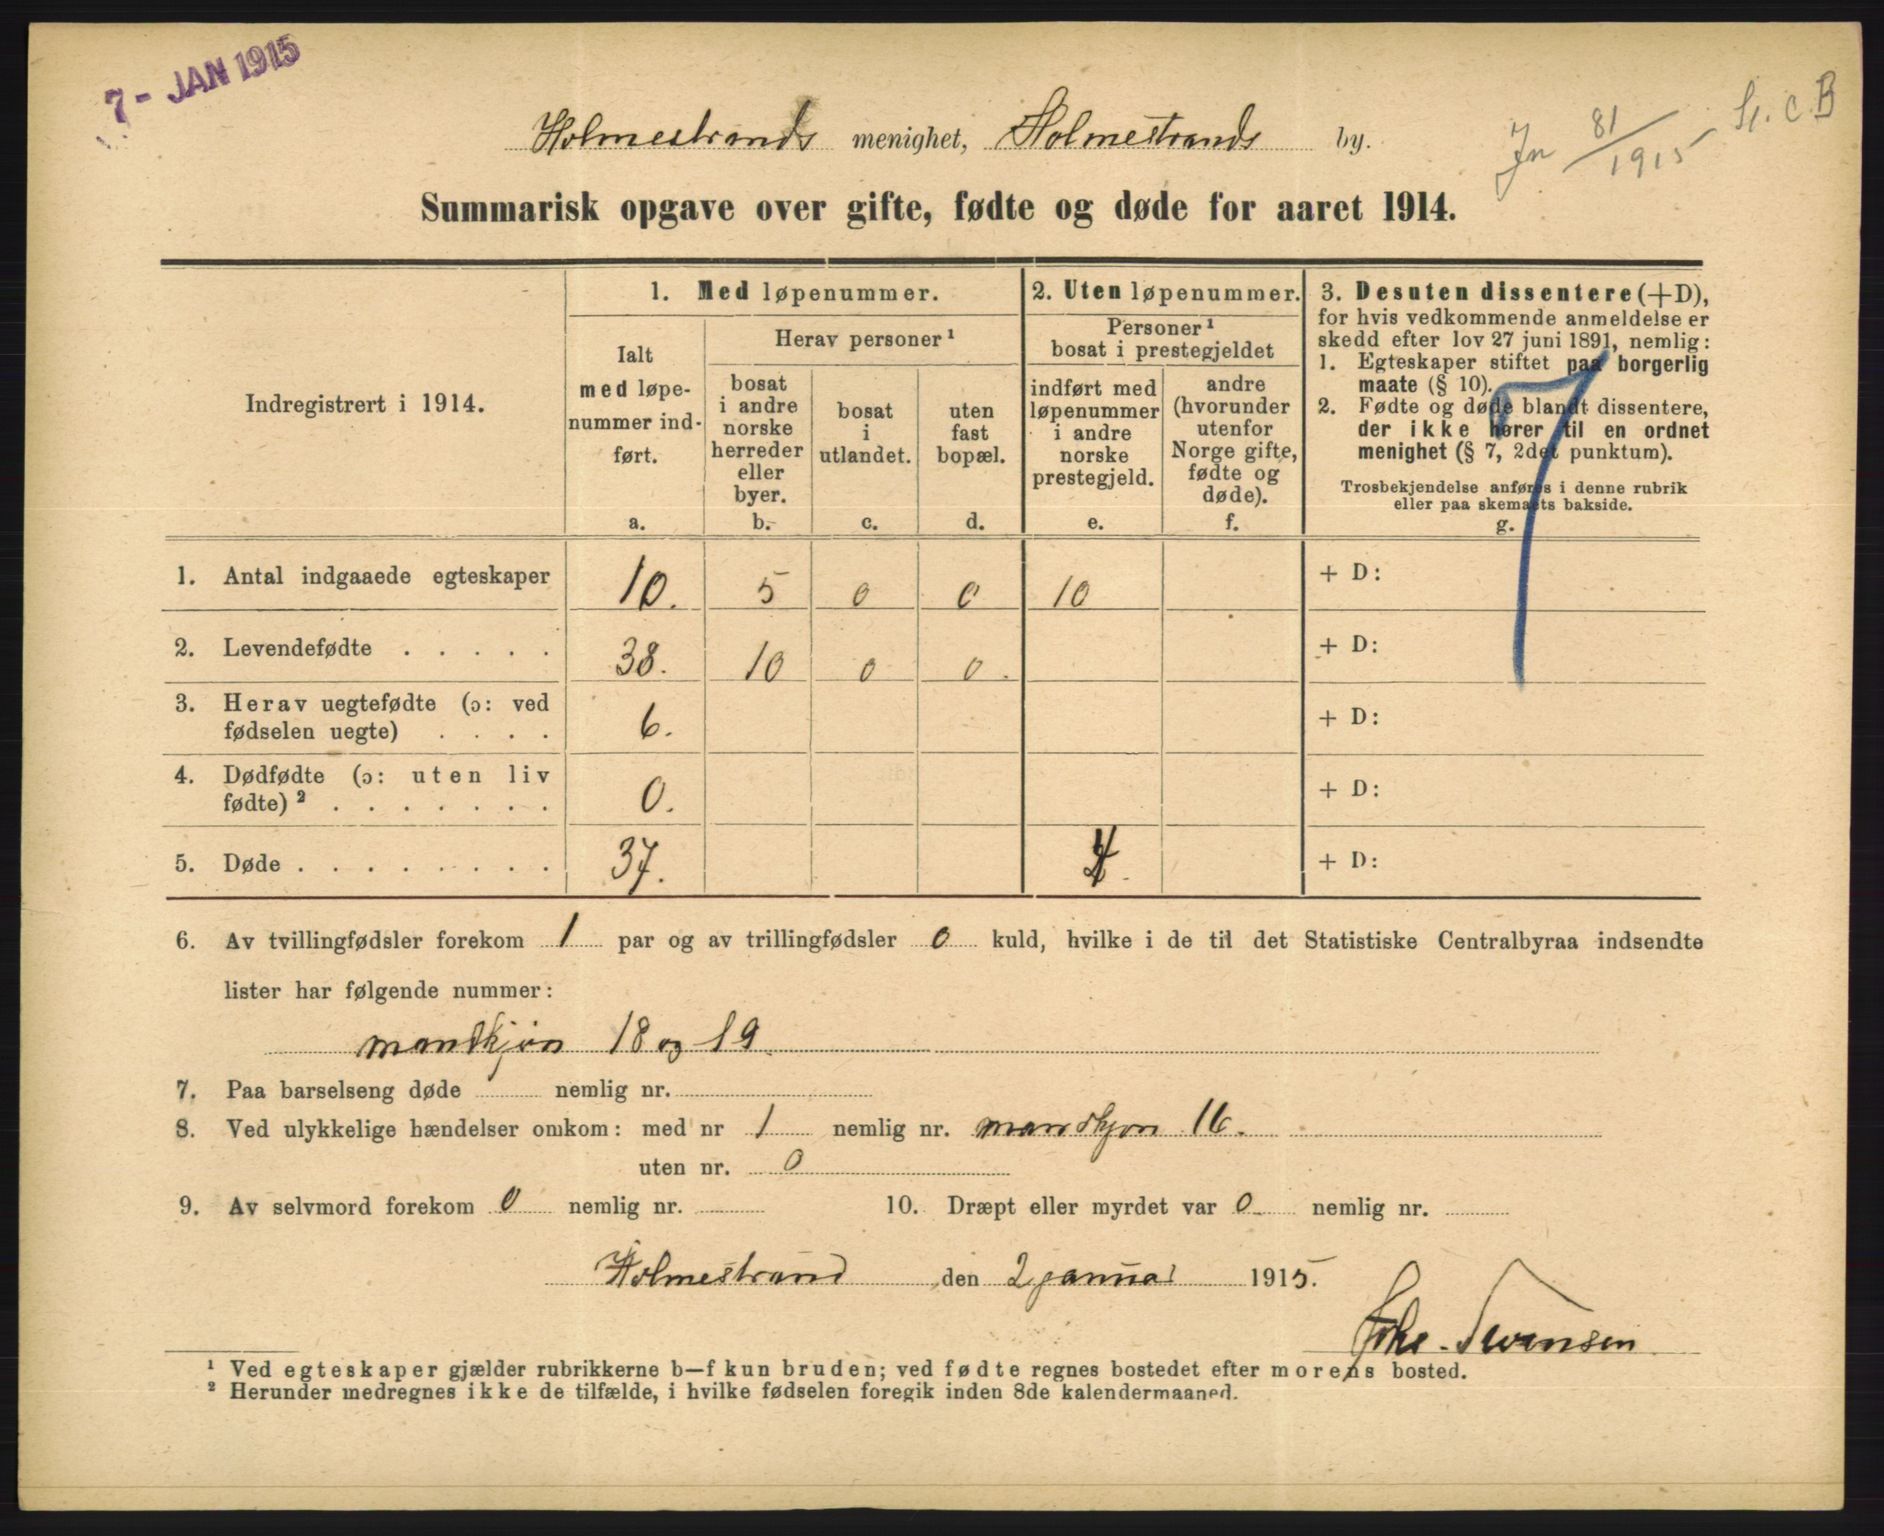 7 - JAN 1915
Holmestrands menighet, Holmestrands by.
Jn 81/1915
Summarisk opgave over gifte, fødte og døde for aaret 1914.
Indregistrert i 1914.
1. Med løpenummer.
Ialt
med løpe-
nummer ind-
ført.
a.
Herav personer ¹
bosat
i andre
norske
herreder
eller
byer.
b.
bosat
i
utlandet.
c.
uten
fast
bopæl.
d.
2. Uten løpenummer.
Personer ¹
bosat i prestegjeldet
indført med
løpenummer
i andre
norske
prestegjeld.
e.
andre
(hvorunder
utenfor
Norge gifte,
fødte og
døde).
f.
3. Desuten dissentere (+D),
for hvis vedkommende anmeldelse er
skedd efter lov 27 juni 1891, nemlig:
1. Egteskaper stiftet paa borgerlig
maate (§ 10).
2. Fødte og døde blandt dissentere,
der ikke hører til en ordnet
menighet (§ 7, 2det punktum).
Trosbekjendelse anføres i denne rubrik
eller paa skemaets bakside.
g.
7
1. Antal indgaaede egteskaper 10. 5 0 0 10 + D:
2. Levendefødte . . . . . 38. 10 0 0. + D:
3. Herav uegtefødte (ɔ: ved
fødselen uegte) . . . . 6. + D:
4. Dødfødte (ɔ: uten liv
fødte) ² . . . . . . . 0. + D:
5. Døde . . . . . . . . 37. + D:
6. Av tvillingfødsler forekom 1 par og av trillingfødsler 0 kuld, hvilke i de til det Statistiske Centralbyraa indsendte
lister har følgende nummer:
mandkjøn 18 og 19
7. Paa barselseng døde nemlig nr.
8. Ved ulykkelige hændelser omkom: med nr 1 nemlig nr. mandkjøn 16.
uten nr. 0
9. Av selvmord forekom 0 nemlig nr. 10. Dræpt eller myrdet var 0 nemlig nr.
Holmestrand den 2 januar 1915.
Svensen
¹ Ved egteskaper gjælder rubrikkerne b—f kun bruden; ved fødte regnes bostedet efter morens bosted.
² Herunder medregnes ikke de tilfælde, i hvilke fødselen foregik inden 8de kalendermaaned.